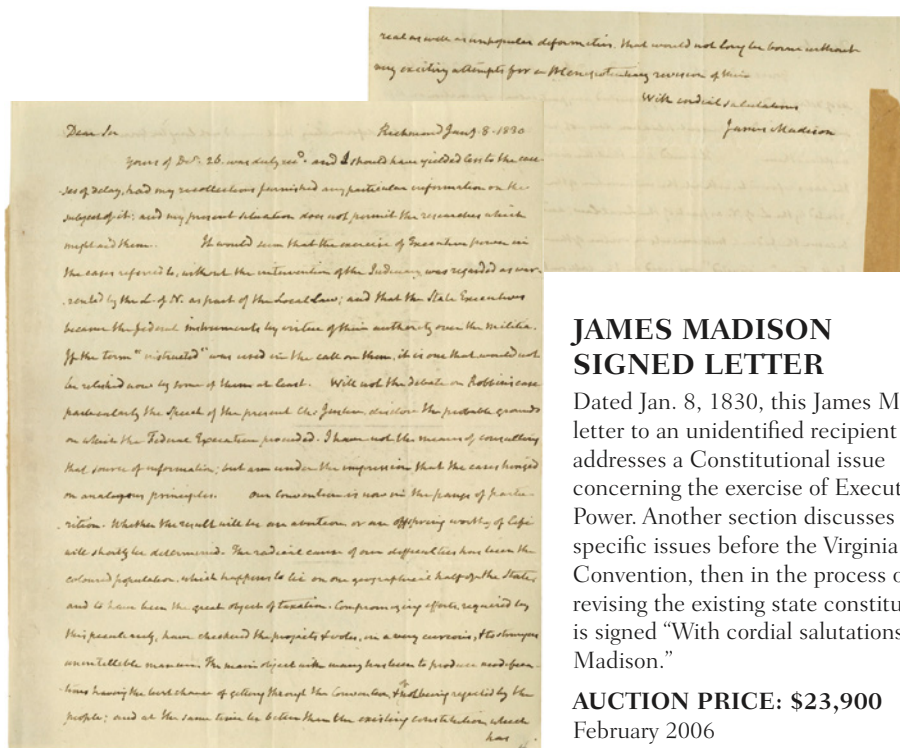 Dear Sir Richmond Jany. 8. 1830
Yours of Decr. 26. was duly recd. and I should have yielded less to the cau-
ses of delay, had my recollections furnished any particular information on the
subject of it: and my present situation does not permit the researches which
might aid them. It would seem that the exercise of Executive power in
the cases referred to, without the intervention of the Judiciary was regarded as war-
ranted by the L. of N. as part of the Local Law; and that the State Executives
became the federal instruments by virtue of their authority over the militia.
If the term "instructed" was used in the call on them, it is one that would not
be relished now by some of them at least. Will not the debate on Robbins case
particularly the Speech of the present Chf Justice, disclose the probable grounds
on which the Federal Executive proceeded. I have not the means of consulting
that source of information; but am under the impression that the cases hinged
on analogous principles. Our Convention is now in the pangs of partu-
rition. Whether the result will be an abortion or an offspring worthy of life
will shortly be determined. The radical cause of our difficulties has been the
coloured population, which happens to lie on one geographical half of the State,
and to have been the great object of taxation. Compromizing efforts, required by
this peculiarity, have checkered the projects & votes, in a very curious, & to strangers
manner. The main object with many has been to produce modifica-
tions having the best chance of getting through the Convention, & of not being rejected by the
people; and at the same time be better than the existing constitution which
has
real as well as unpopular deformities, that would not long be borne without
very exciting attempts for a revision of their
With cordial salutations
James Madison
JAMES MADISON
SIGNED LETTER
Dated Jan. 8, 1830, this James M
letter to an unidentified recipient
addresses a Constitutional issue
concerning the exercise of Execut
Power. Another section discusses
specific issues before the Virginia
Convention, then in the process o
revising the existing state constitu
is signed “With cordial salutations
Madison.”
AUCTION PRICE: $23,900
February 2006